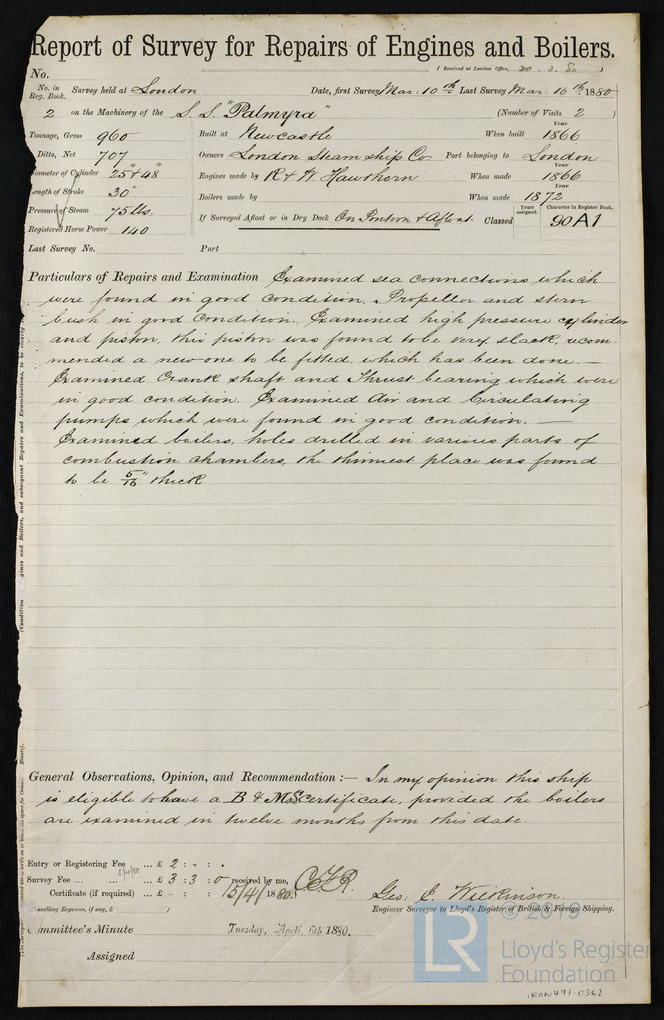 Report of Survey for Repairs of Engines and Boilers.
No. (Received at London Office, 30.3.80)
No. in Reg. Book. Survey held at London Date, first Survey Mar: 10th Last Survey Mar. 16th 1880
2 on the Machinery of the S.S. "Palmyra" (Number of Visits 2)
Tonnage, Gross 960 Built at Newcastle When built Year 1866
Ditto, Net 707 Owners London Steam ship Co. Port belonging to London
Diameter of Cylinder 25" & 48" Engines made by R & W. Hawthorn When made Year 1866
Length of Stroke 30" Boilers made by When made Year 1872
Pressure of Steam 75 lbs. If Surveyed Afloat or in Dry Dock On Pontoon & Afloat. Classed Years assigned. Character in Register Book. 90A1
Registered Horse Power 140
Last Survey No. Port
Particulars of Repairs and Examination Examined sea connections which
were found in good condition. Propeller and stern
bush in good condition. Examined high pressure cylinder
and piston, this piston was found to be very slack, recom-
mended a new one to be fitted, which has been done. —
Examined Crank shaft and Thrust bearing which were
in good condition. Examined Air and Circulating
pumps which were found in good condition. —
Examined boilers, holes drilled in various parts of
combustion chambers, the thinnest place was found
to be 5/16" thick
General Observations, Opinion, and Recommendation :— In my opinion this ship
is eligible to have a B & MS certificate, provided the boilers
are examined in twelve months from this date.
Entry or Registering Fee ... £ 2 : - : -
Survey Fee ... ... £ 3 : 3 : 0 received by me,
Certificate (if required) ... £ - : : 15/4/1880.
Travelling Expenses, (if any, £ )
Geo: C. Wilkinson
Engineer Surveyor to Lloyd's Register of British & Foreign Shipping.
Committee's Minute Tuesday, April, 6th 1880.
Assigned
© 2019
LR
Lloyd's Register
Foundation
IRON491-0362